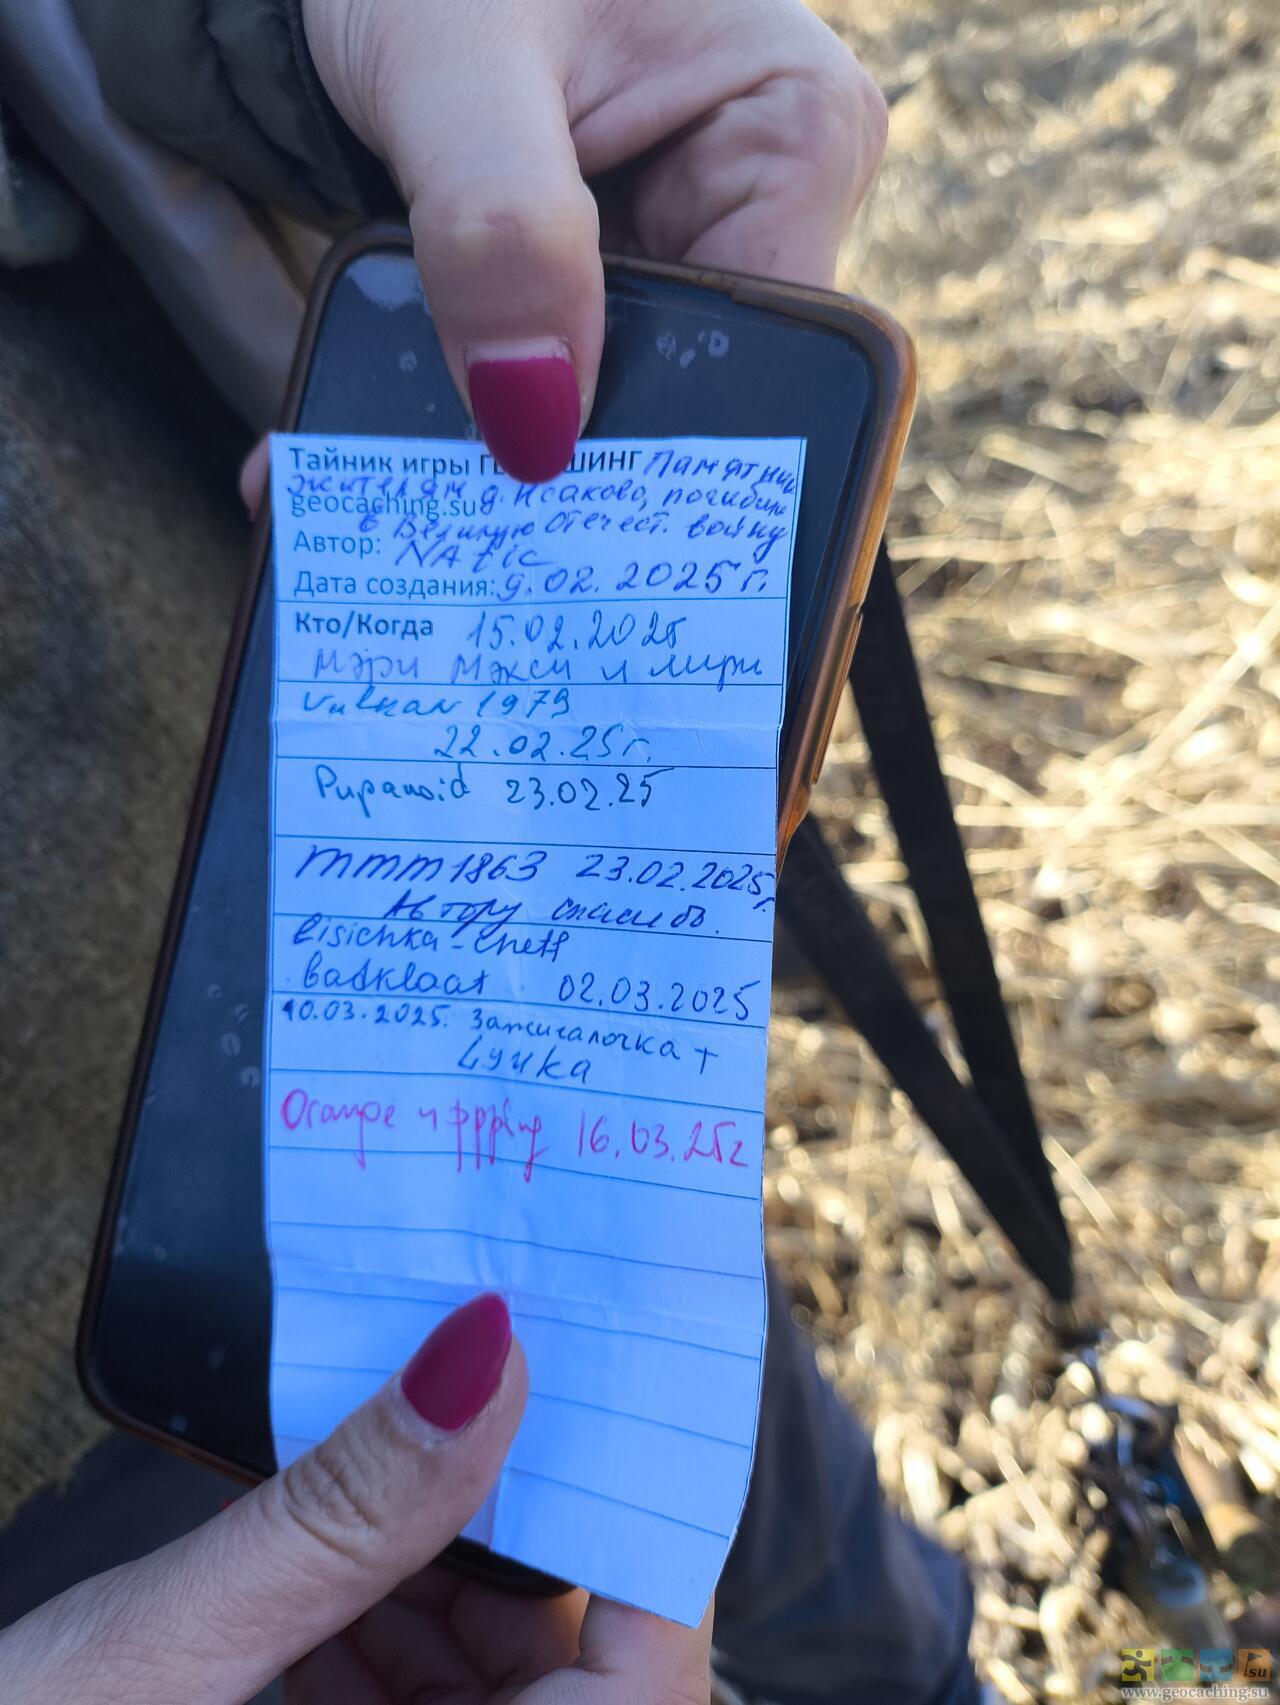 Тайник игры ШИНГ Памятник
жителям д. Исаково, погибш
geocaching.su
в Великую Отечест. войну
Автор: NAtic
Дата создания: 9.02.2025г.
Кто/Когда 15.02.2025
Мэри Мэкси и Мири
Vulkan 1979
22.02.25г.
Pupanoid 23.02.25
mmm1863 23.02.2025г.
Автору спасибо.
Lisichka-
02.03.2025
10.03.2025. Зажигалочка +
Lучка
Orange и 16.03.25г
su
www.geocaching.su